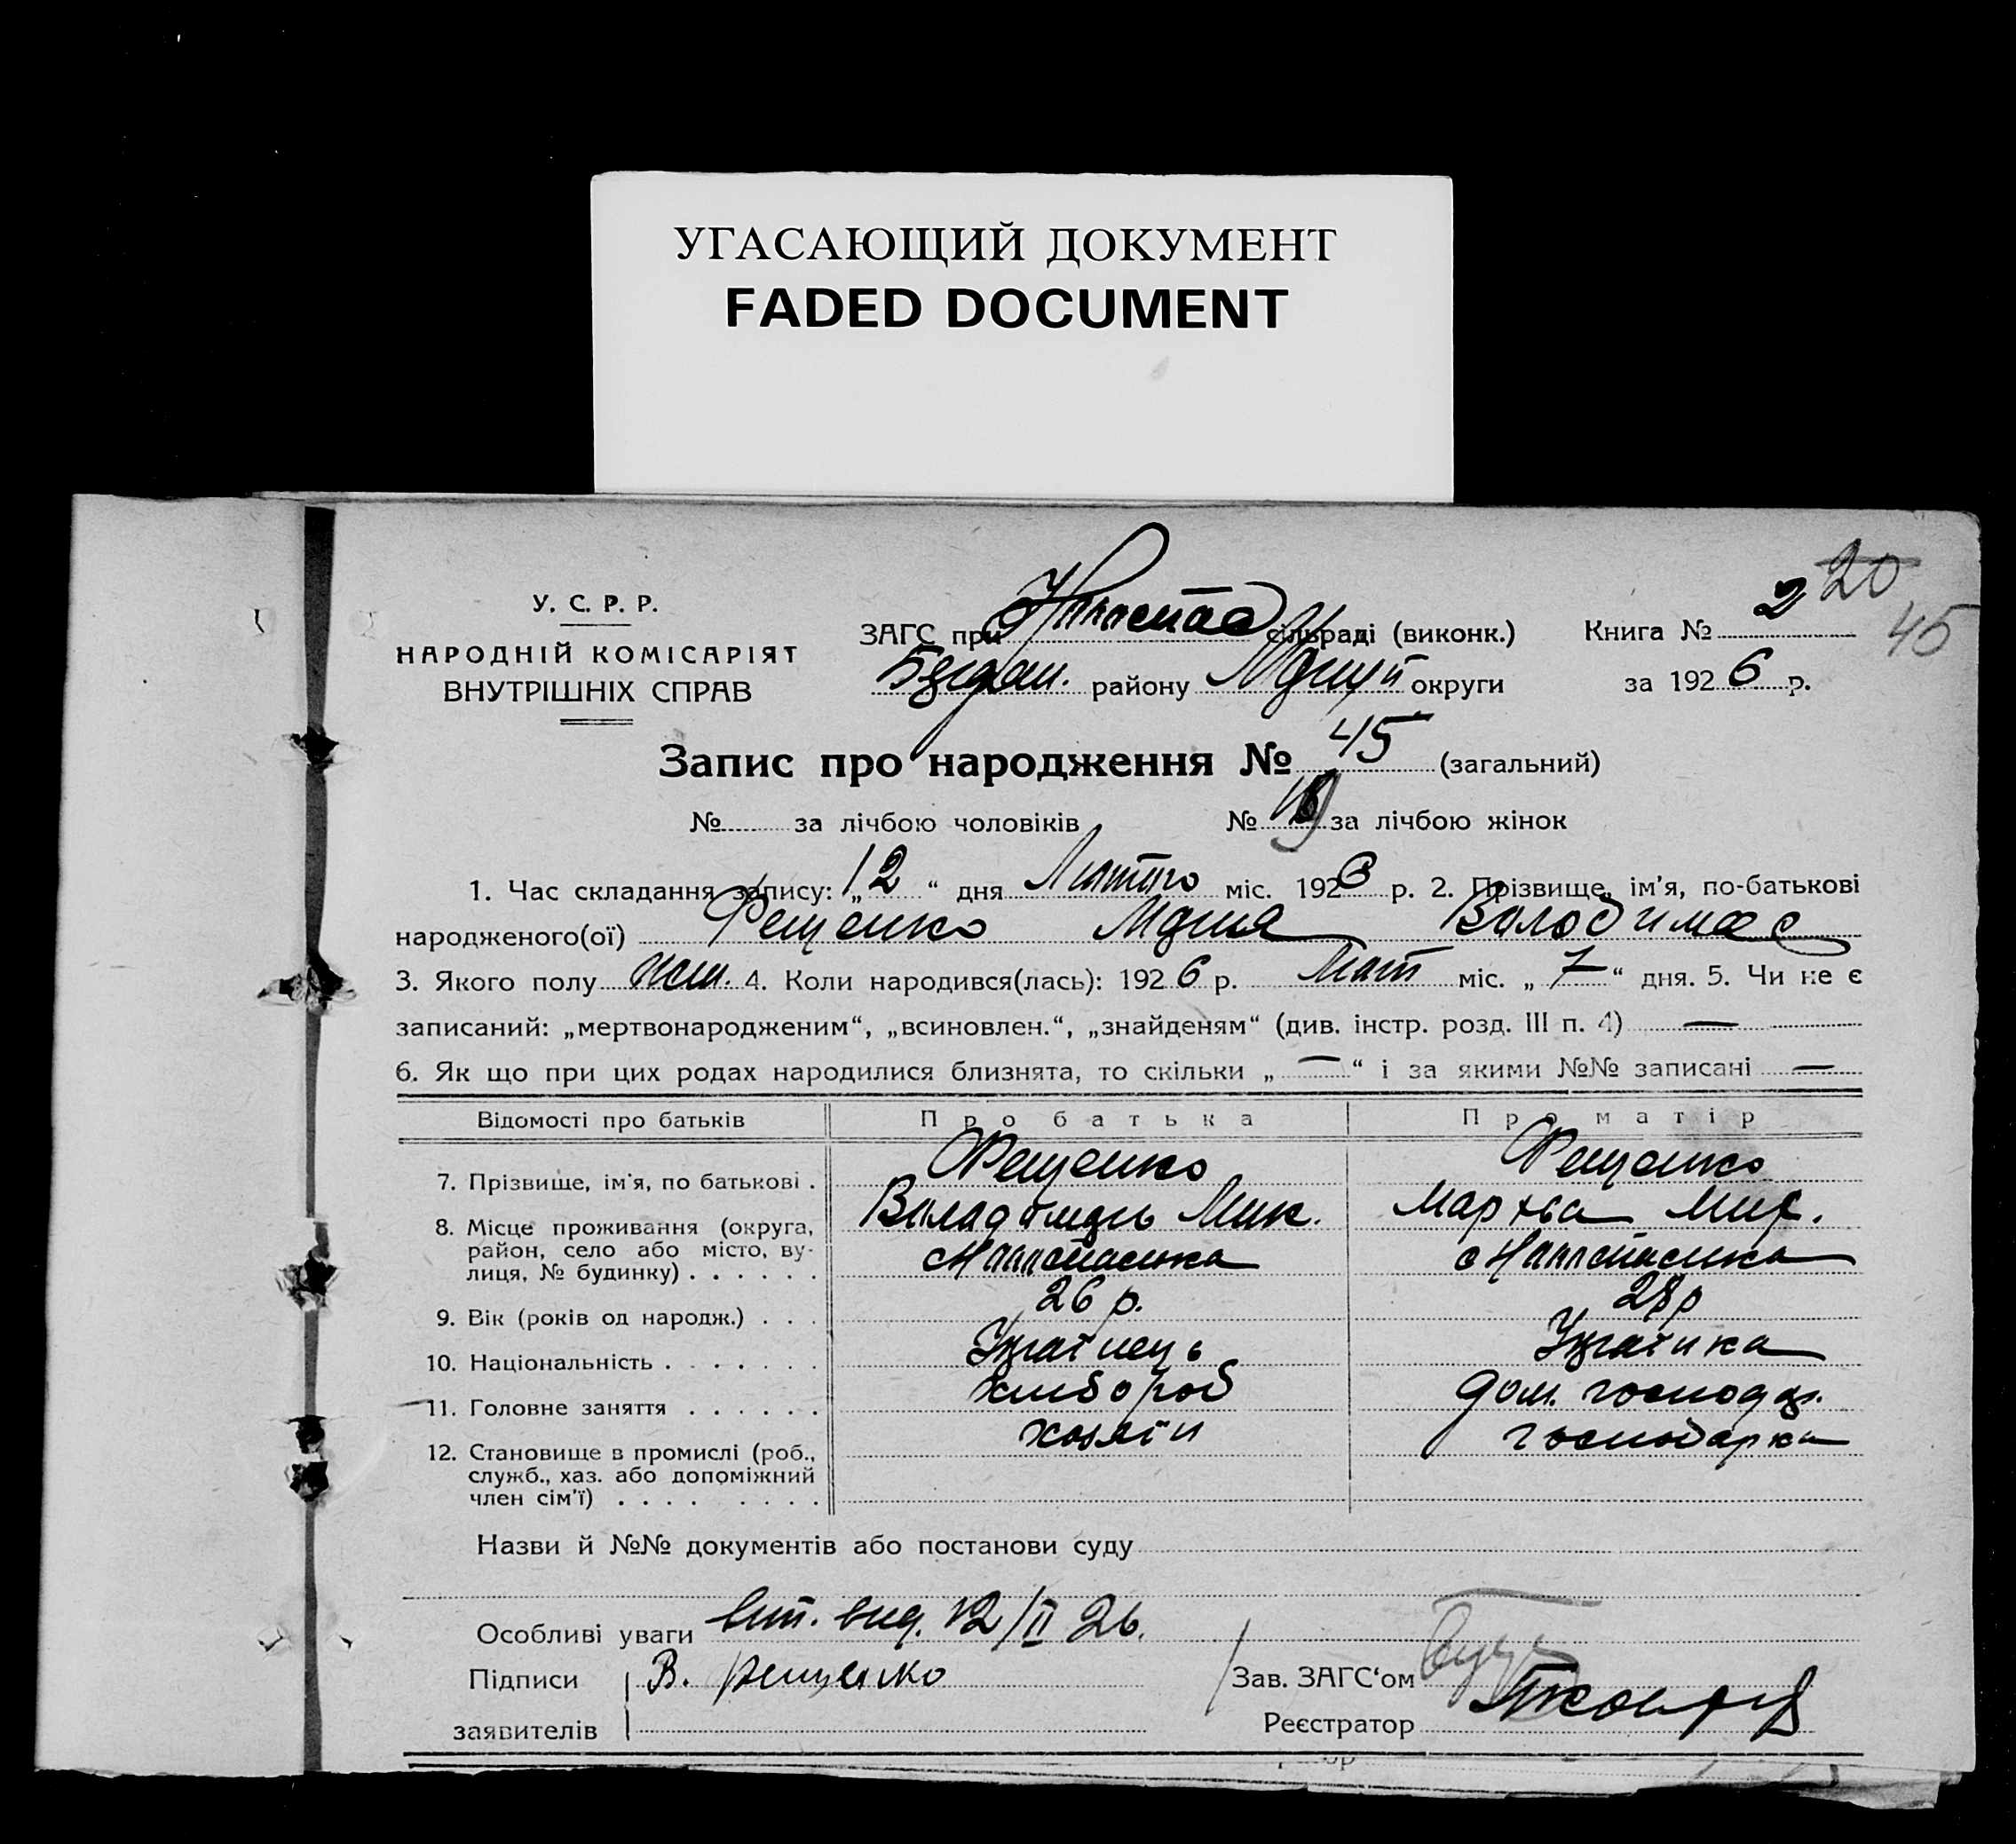 УГАСАЮЩИЙ ДОКУМЕНТ
FADED DOCUMENT
20
45
У. С. Р. Р.
НАРОДНІЙ КОМІСАРІЯТ
ВНУТРІШНІХ СПРАВ
ЗАГС при сільраді (виконк.)
району округи
Книга № 2
за 1926 р.
Запис про народження № 45 (загальний)
№ за лічбою чоловіків № за лічбою жінок
1. Час складання запису: „12“ дня Лютого міс. 1926 р. 2. Прізвище, ім'я, по-батькові
народженого(ої) Рещенко Марія Володимер
3. Якого полу жін. 4. Коли народився(лась): 1926 р. Лют міс. „7“ дня. 5. Чи не є
записаний: „мертвонародженим“, „всиновлен.“, „знайденям“ (див. інстр. розд. III п. 4) —
6. Як що при цих родах народилися близнята, то скільки „—“ і за якими №№ записані —
Відомості про батьків Про батька Про матір
7. Прізвище, ім'я, по батькові . Рещенко Рещенко
Мик. Марфа
8. Місце проживання (округа,
район, село або місто, ву-
лиця, № будинку) . . . . . .
9. Вік (років од народж.) . . . 26 р. 28 р
10. Національність . . . . . . . Українець Українка
11. Головне заняття . . . . . . хлібороб дом. господар.
12. Становище в промислі (роб.,
служб., хаз. або допоміжний
член сім'ї) . . . . . . . . хозяїн господарка
Назви й №№ документів або постанови суду
Особливі уваги вит. вид. 12/II 26.
Підписи В. Рещенко Зав. ЗАГС‘ом
заявителів Реєстратор